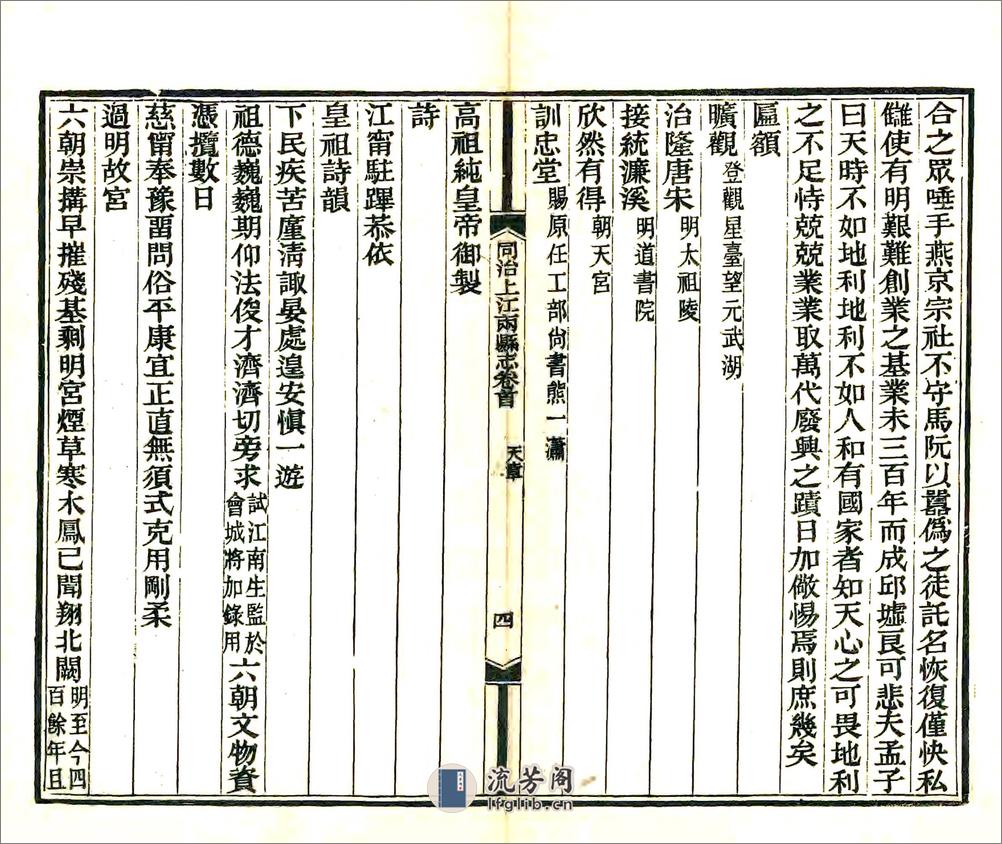 合之眾唾手燕京宗社不守馬阮以嚚僞之徒託名恢復僅快私
讎使有明艱難創業之基業未三百年而成邱墟良可悲夫孟子
曰天時不如地利地利不如人和有國家者知天心之可畏地利
之不足恃兢兢業業取萬代廢興之蹟日加儆惕焉則庶幾矣
匾額
曠觀 登觀星臺望元武湖
治隆唐宋 明太祖陵
接統濂溪 明道書院
欣然有得 朝天宮
訓忠堂 賜原任工部尙書熊一瀟
同治上江兩縣志卷首 天章 四
高祖純皇帝御製
詩
江甯駐蹕恭依
皇祖詩韻
下民疾苦廑淸諏晏處遑安愼一遊
祖德巍巍期仰法俊才濟濟切旁求試江南生監於會城將加錄用六朝文物資
憑攬數日
慈甯奉豫畱問俗平康宜正直無須式克用剛柔
過明故宮
六朝崇搆早摧殘基剩明宮煙草寒木鳳已聞翔北闕明至今四百餘年且
流芳阁
lfglib.cn